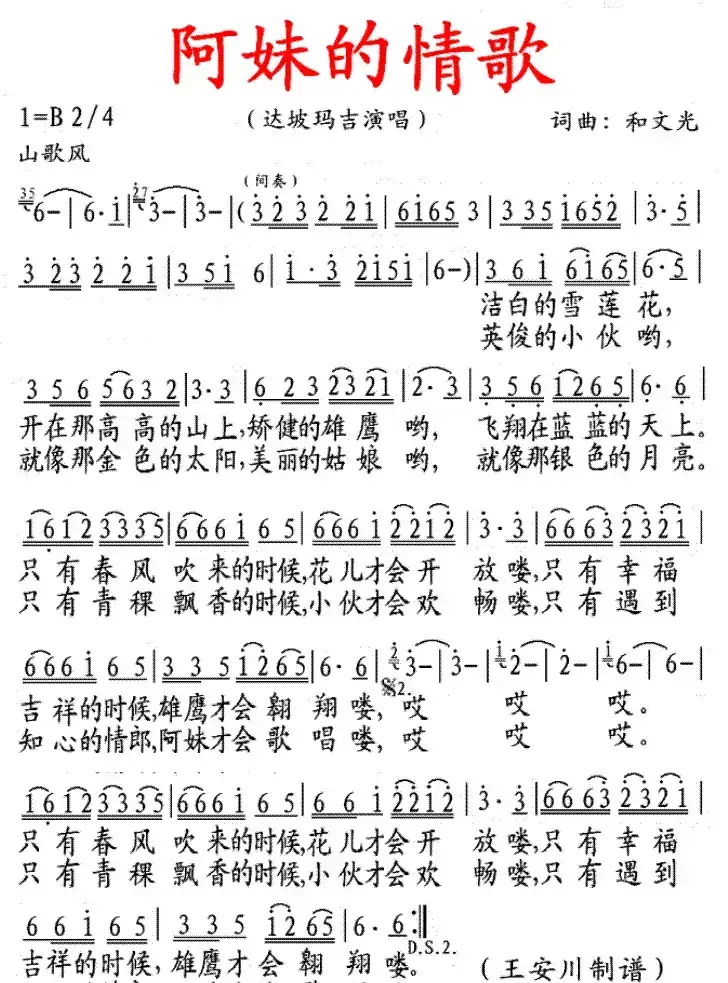 阿妹的情歌
1=B 2/4 （达坡玛吉演唱） 词曲：和文光
山歌风
35 6- | 6·i | 27 3- | 3- | (间奏) (3 2 3 2 2 1 | 6 1 6 5 3 | 3 3 5 1 6 5 2 | 3·5 |
3 2 3 2 2 i | 3 5 i 6 | i·3 2 i 5 i | 6-) | 3 6 i 6 i 6 5 | 6·5 |
洁白的雪莲花，
英俊的小伙哟，
3 5 6 5 6 3 2 | 3·3 | 6 2 3 2 3 2 1 | 2·3 | 3 5 6 1 2 6 5 | 6·6 |
开在那高高的山上，矫健的雄鹰哟， 飞翔在蓝蓝的天上。
就像那金色的太阳，美丽的姑娘哟， 就像那银色的月亮。
1 6 1 2 3 3 3 5 | 6 6 6 i 6 5 | 6 6 6 i 2 2 i 2 | 3·3 | 6 6 6 3 2 3 2 i |
只有春风吹来的时候，花儿才会开放喽，只有幸福
只有青稞飘香的时候，小伙才会欢畅喽，只有遇到
6 6 6 i 6 5 | 3 3 5 i 2 6 5 | 6·6 | 2 3- | 3- | 1 2- | 2- | 1 6- | 6- |
2.
吉祥的时候，雄鹰才会翱翔喽，哎 哎 哎。
知心的情郎，阿妹才会歌唱喽，哎 哎 哎。
1 6 1 2 3 3 3 5 | 6 6 6 i 6 5 | 6 6 i 2 2 i 2 | 3·3 | 6 6 6 3 2 3 2 i |
只有春风吹来的时候，花儿才会开放喽，只有幸福
只有青稞飘香的时候，小伙才会欢畅喽，只有遇到
6 6 i 6 5 | 3 3 5 i 2 6 5 | 6·6 :‖
D.S.2.
吉祥的时候，雄鹰才会翱翔喽。 （王安川制谱）